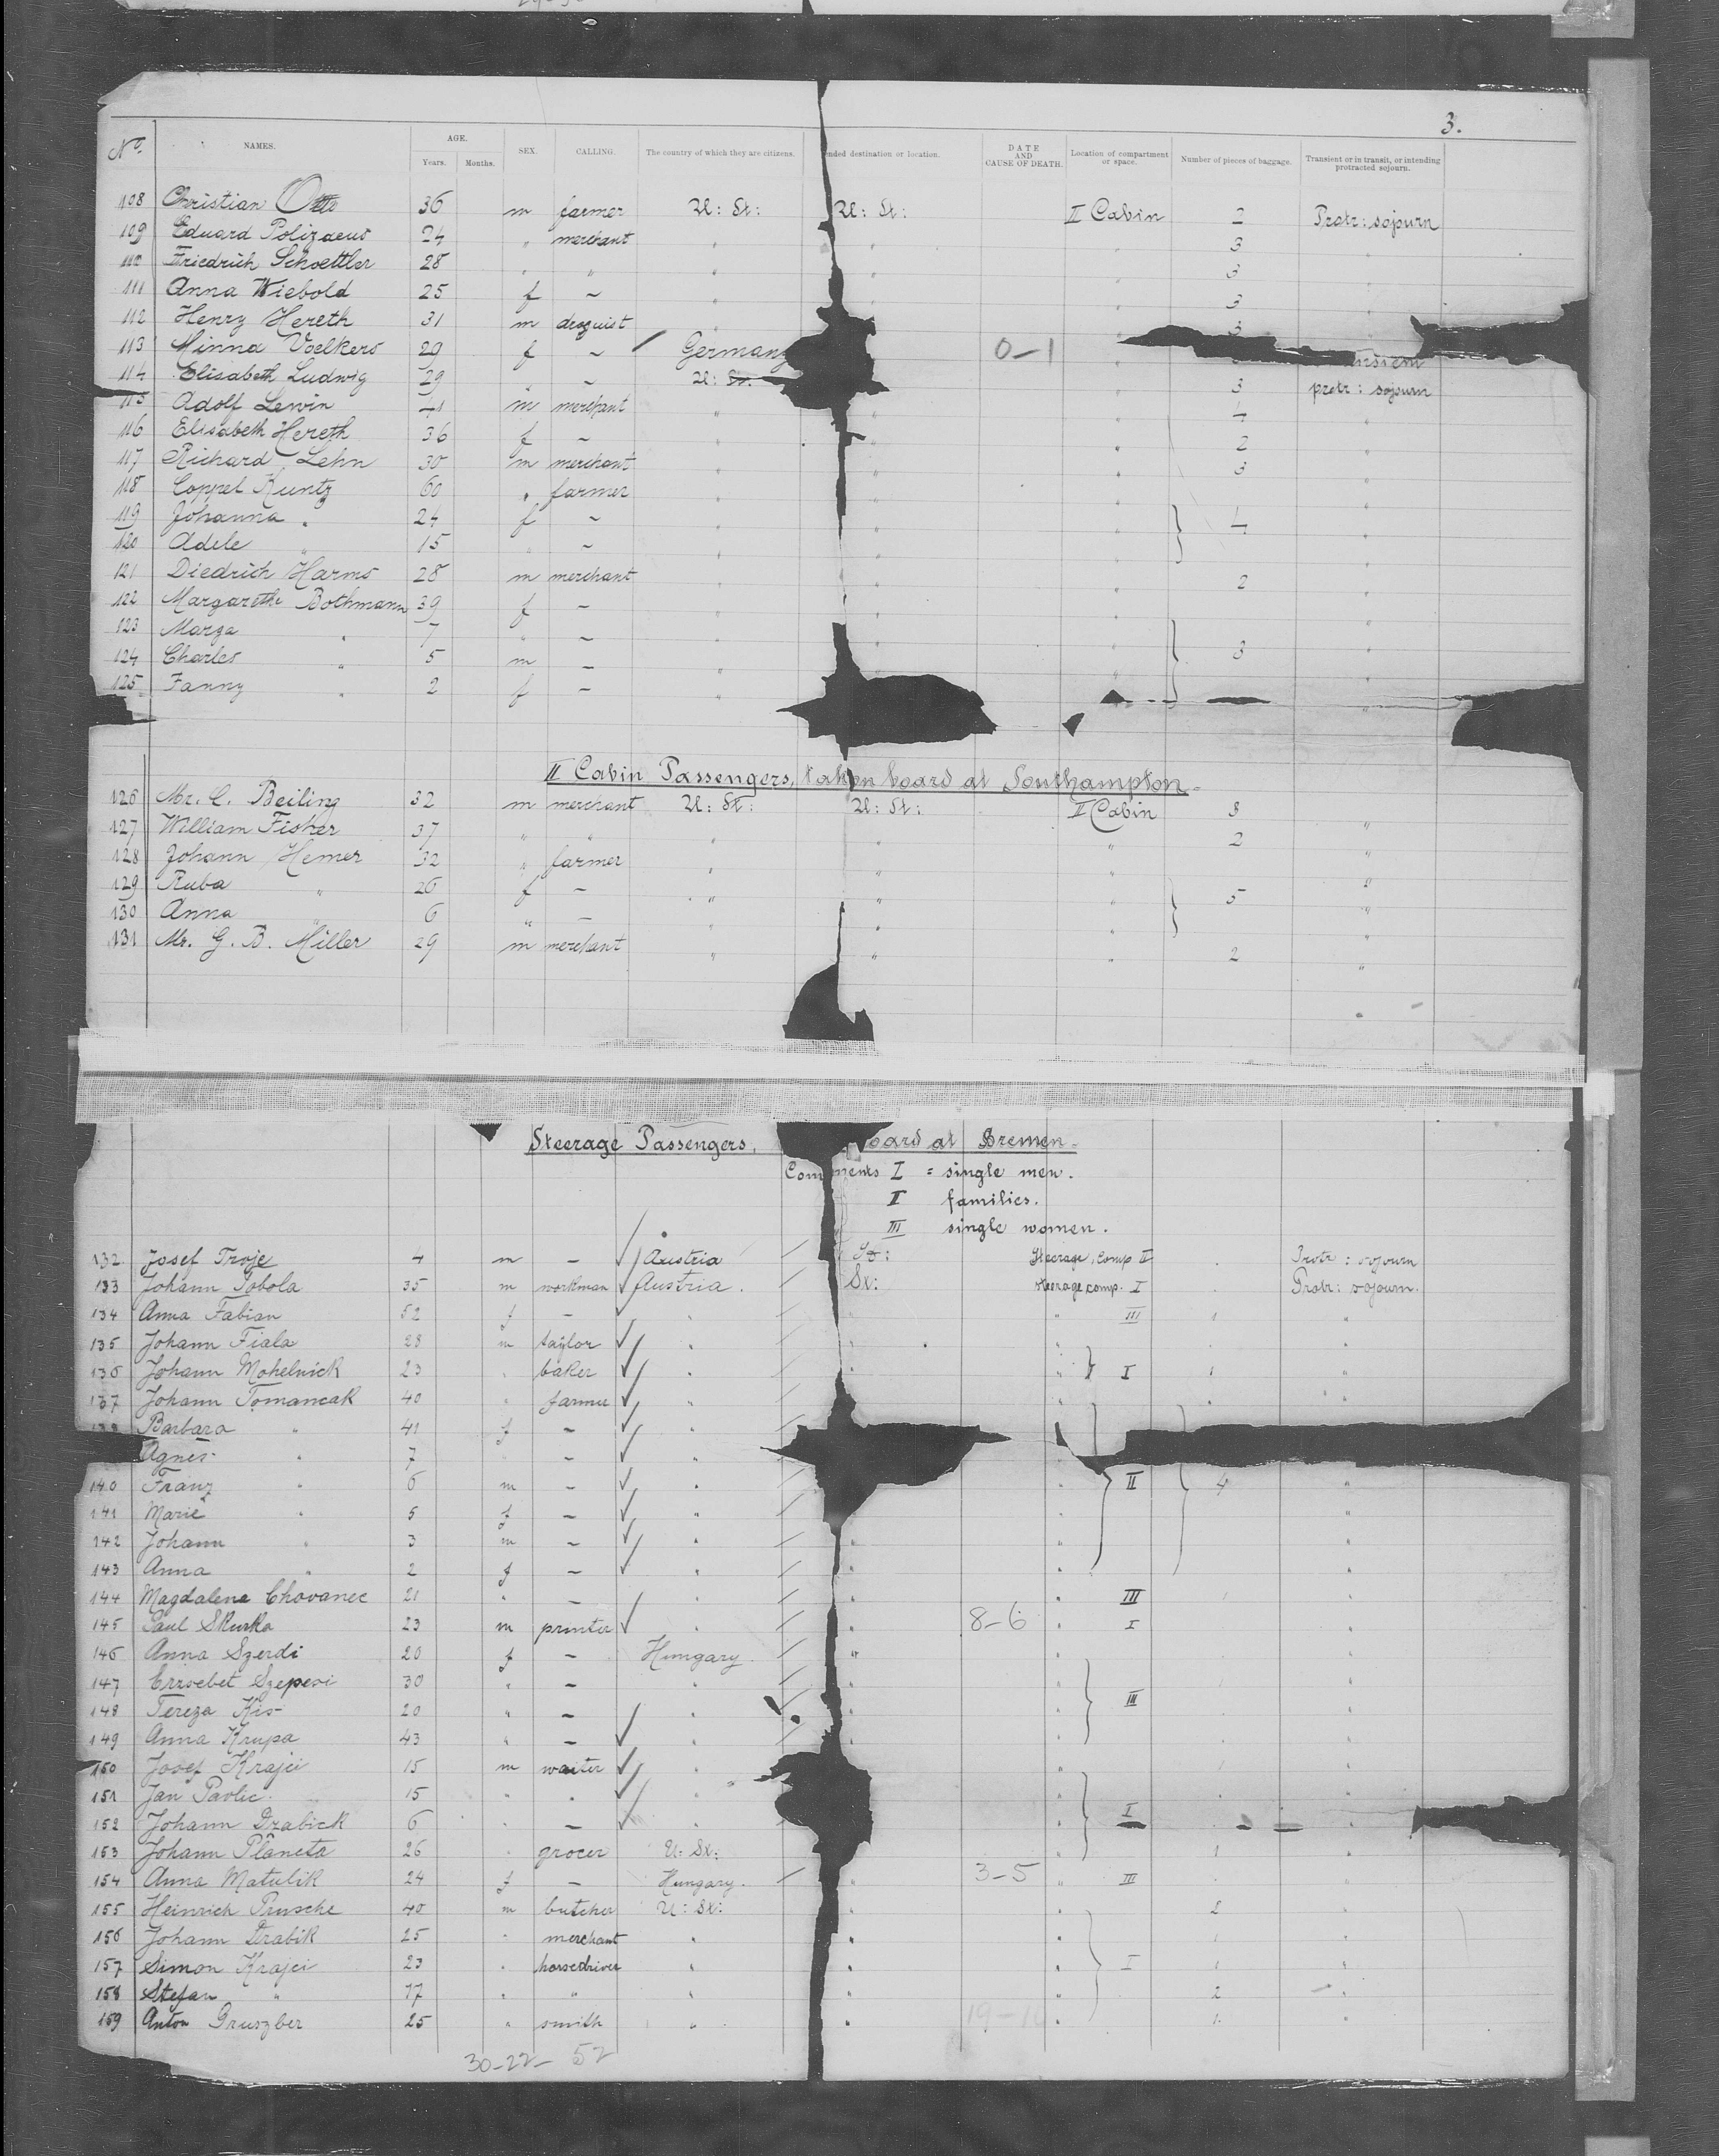 3.
No. NAMES. AGE. Years. Months. SEX. CALLING. The country of which they are citizens. ended destination or location. DATE AND CAUSE OF DEATH. Location of compartment or space. Number of pieces of baggage. Transient or in transit, or intending protracted sojourn.
108 Christian Otto 36 m farmer U: St: U: St: II Cabin 2 Protr: sojourn
109 Eduard Polizaeus 24 " merchant " " " 3 "
110 Friedrich Schoettler 28 " " " " " 3 "
111 Anna Wiebold 25 f – " " 3
112 Henry Hereth 31 m droguist " " 3
113 Minna Voelkers 29 f – Germany 0–1 "
114 Elisabeth Ludwig 29 " – U: St. " 3 protr: sojourn
115 Adolf Lewin 41 m merchant " " " 4 "
116 Elisabeth Hereth 36 f – " " " 2 "
117 Richard Lehn 30 m merchant " " " 3 "
118 Coppel Kuntz 60 " farmer " " " "
119 Johanna " 24 f – " " " 4 "
120 Adele " 15 " – " " " "
121 Diedrich Harms 28 m merchant " " " 2 "
122 Margarethe Bothmann 39 f – " " " "
123 Marga " 7 " – " " " "
124 Charles " 5 m – " " " 3 "
125 Fanny " 2 f – " "
II Cabin Passengers, taken board at Southampton.
126 Mr. C. Beiling 32 m merchant U: St: U: St: II Cabin 3 "
127 William Fisher 37 " " " " " 2 "
128 Johann Hemer 32 " farmer " " " "
129 Ruba " 26 f – " " " 5 "
130 Anna " 6 " – " " " "
131 Mr. G. B. Miller 29 m merchant " " " 2 "
Steerage Passengers, board at Bremen.
Com ments I = single men.
II families.
III single women.
132 Josef Troje 4 m – Austria St: Steerage, Comp II Protr: sojourn
133 Johann Sobola 35 m workman Austria. St: steerage comp. I Protr: sojourn.
134 Anna Fabian 52 f – " " III 1 "
135 Johann Fiala 28 m taylor " " "
136 Johann Mohelnick 23 " baker " " I 1 "
137 Johann Tomancak 40 " farmer " " "
Barbara " 41 f – "
Agnes " 7 " – "
140 Franz " 6 m – " " II 4 "
141 Marie " 5 f – " " "
142 Johann " 3 m – " " " "
143 Anna " 2 f – " " " "
144 Magdalena Chovanec 21 " – " " " III 1 "
145 Paul Skurka 23 m printer " " 8–6 " I "
146 Anna Szerdi 20 f – Hungary. " " "
147 Erzsebet Szepesi 30 " – " " " "
148 Tereza Kis 20 " – " " " III "
149 Anna Krupa 43 " – " " " "
150 Josef Krajci 15 m waiter " " 1 "
151 Jan Pavlic 15 " " " " "
152 Johann Drabick 6 " – " " I "
153 Johann Planeta 26 " grocer U: St: " 1 "
154 Anna Matulik 24 f – Hungary. " 3–5 " III "
155 Heinrich Prusche 40 m butcher U: St: " " 2 "
156 Johann Drabik 25 " merchant " " " 1 "
157 Simon Krajci 23 " horsedriver " " " I 1 "
158 Stefan " 17 " " " " " 2 "
159 Anton Gruszber 25 " smith " " " 1 "
30–22– 52